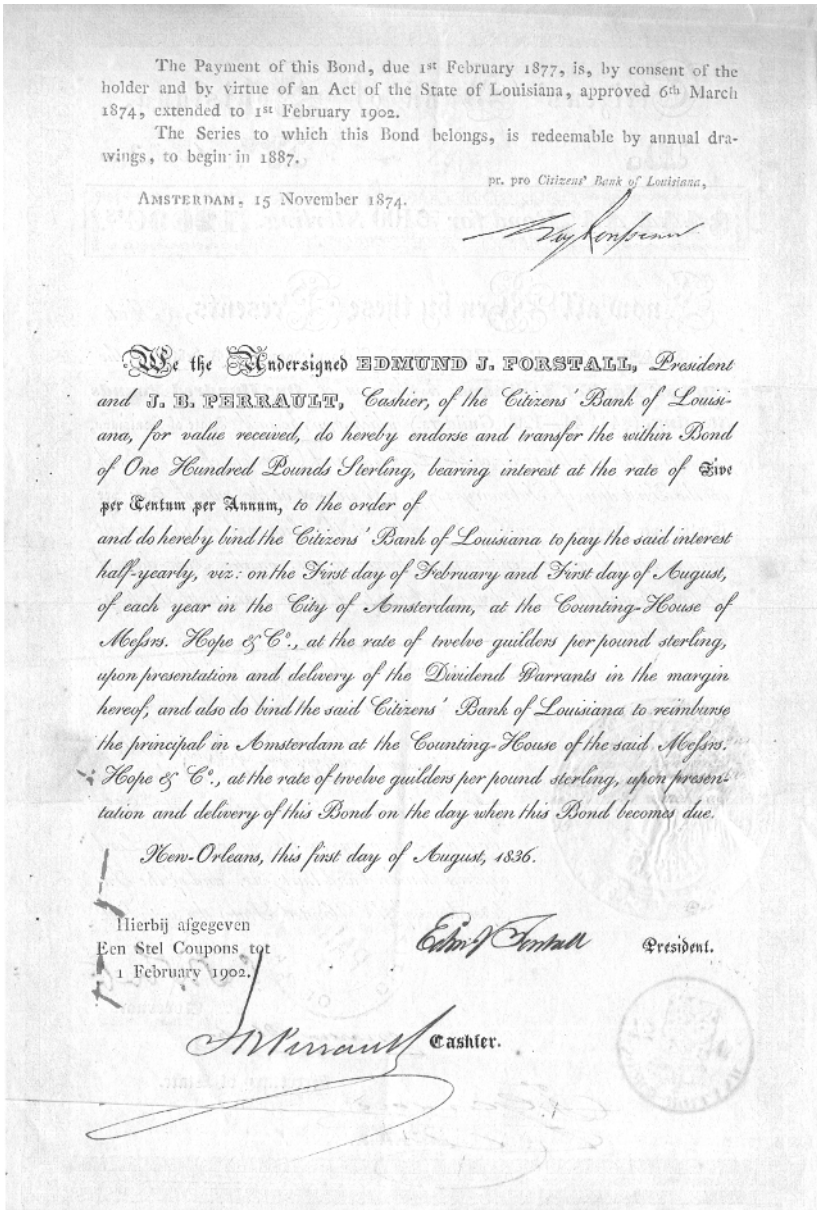 The Payment of this Bond, due 1st February 1877, is, by consent of the
holder and by virtue of an Act of the State of Louisiana, approved 6th March
1874, extended to 1st February 1902.
The Series to which this Bond belongs, is redeemable by annual dra-
wings, to begin in 1887.
pr. pro Citizens' Bank of Louisiana,
AMSTERDAM, 15 November 1874.
We the Undersigned EDMUND J. FORSTALL, President
and J. B. PERRAULT, Cashier, of the Citizens' Bank of Louisi-
ana, for value received, do hereby endorse and transfer the within Bond
of One Hundred Pounds Sterling, bearing interest at the rate of Five
per Centum per Annum, to the order of
and do hereby bind the Citizens' Bank of Louisiana to pay the said interest
half-yearly, viz: on the First day of February and First day of August,
of each year in the City of Amsterdam, at the Counting-House of
Meſsrs. Hope & Co., at the rate of twelve guilders per pound sterling,
upon presentation and delivery of the Dividend Warrants in the margin
hereof, and also do bind the said Citizens' Bank of Louisiana to reimburse
the principal in Amsterdam at the Counting-House of the said Meſsrs.
Hope & Co., at the rate of twelve guilders per pound sterling, upon presen-
tation and delivery of this Bond on the day when this Bond becomes due.
New-Orleans, this first day of August, 1836.
Hierbij afgegeven
Een Stel Coupons tot
1 February 1902.
Edm J Forstall President.
J B Perrault Cashier.